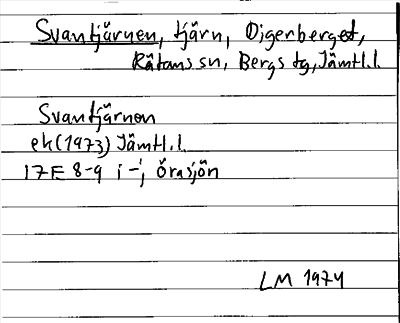 Svantjärnen, tjärn, Digerberget,
Rätans sn, Bergs tg, Jämtl.l.
Svantjärnen
ek (1973) Jämtl.l.
17E 8-9 i-j Öratjön
LM 1974